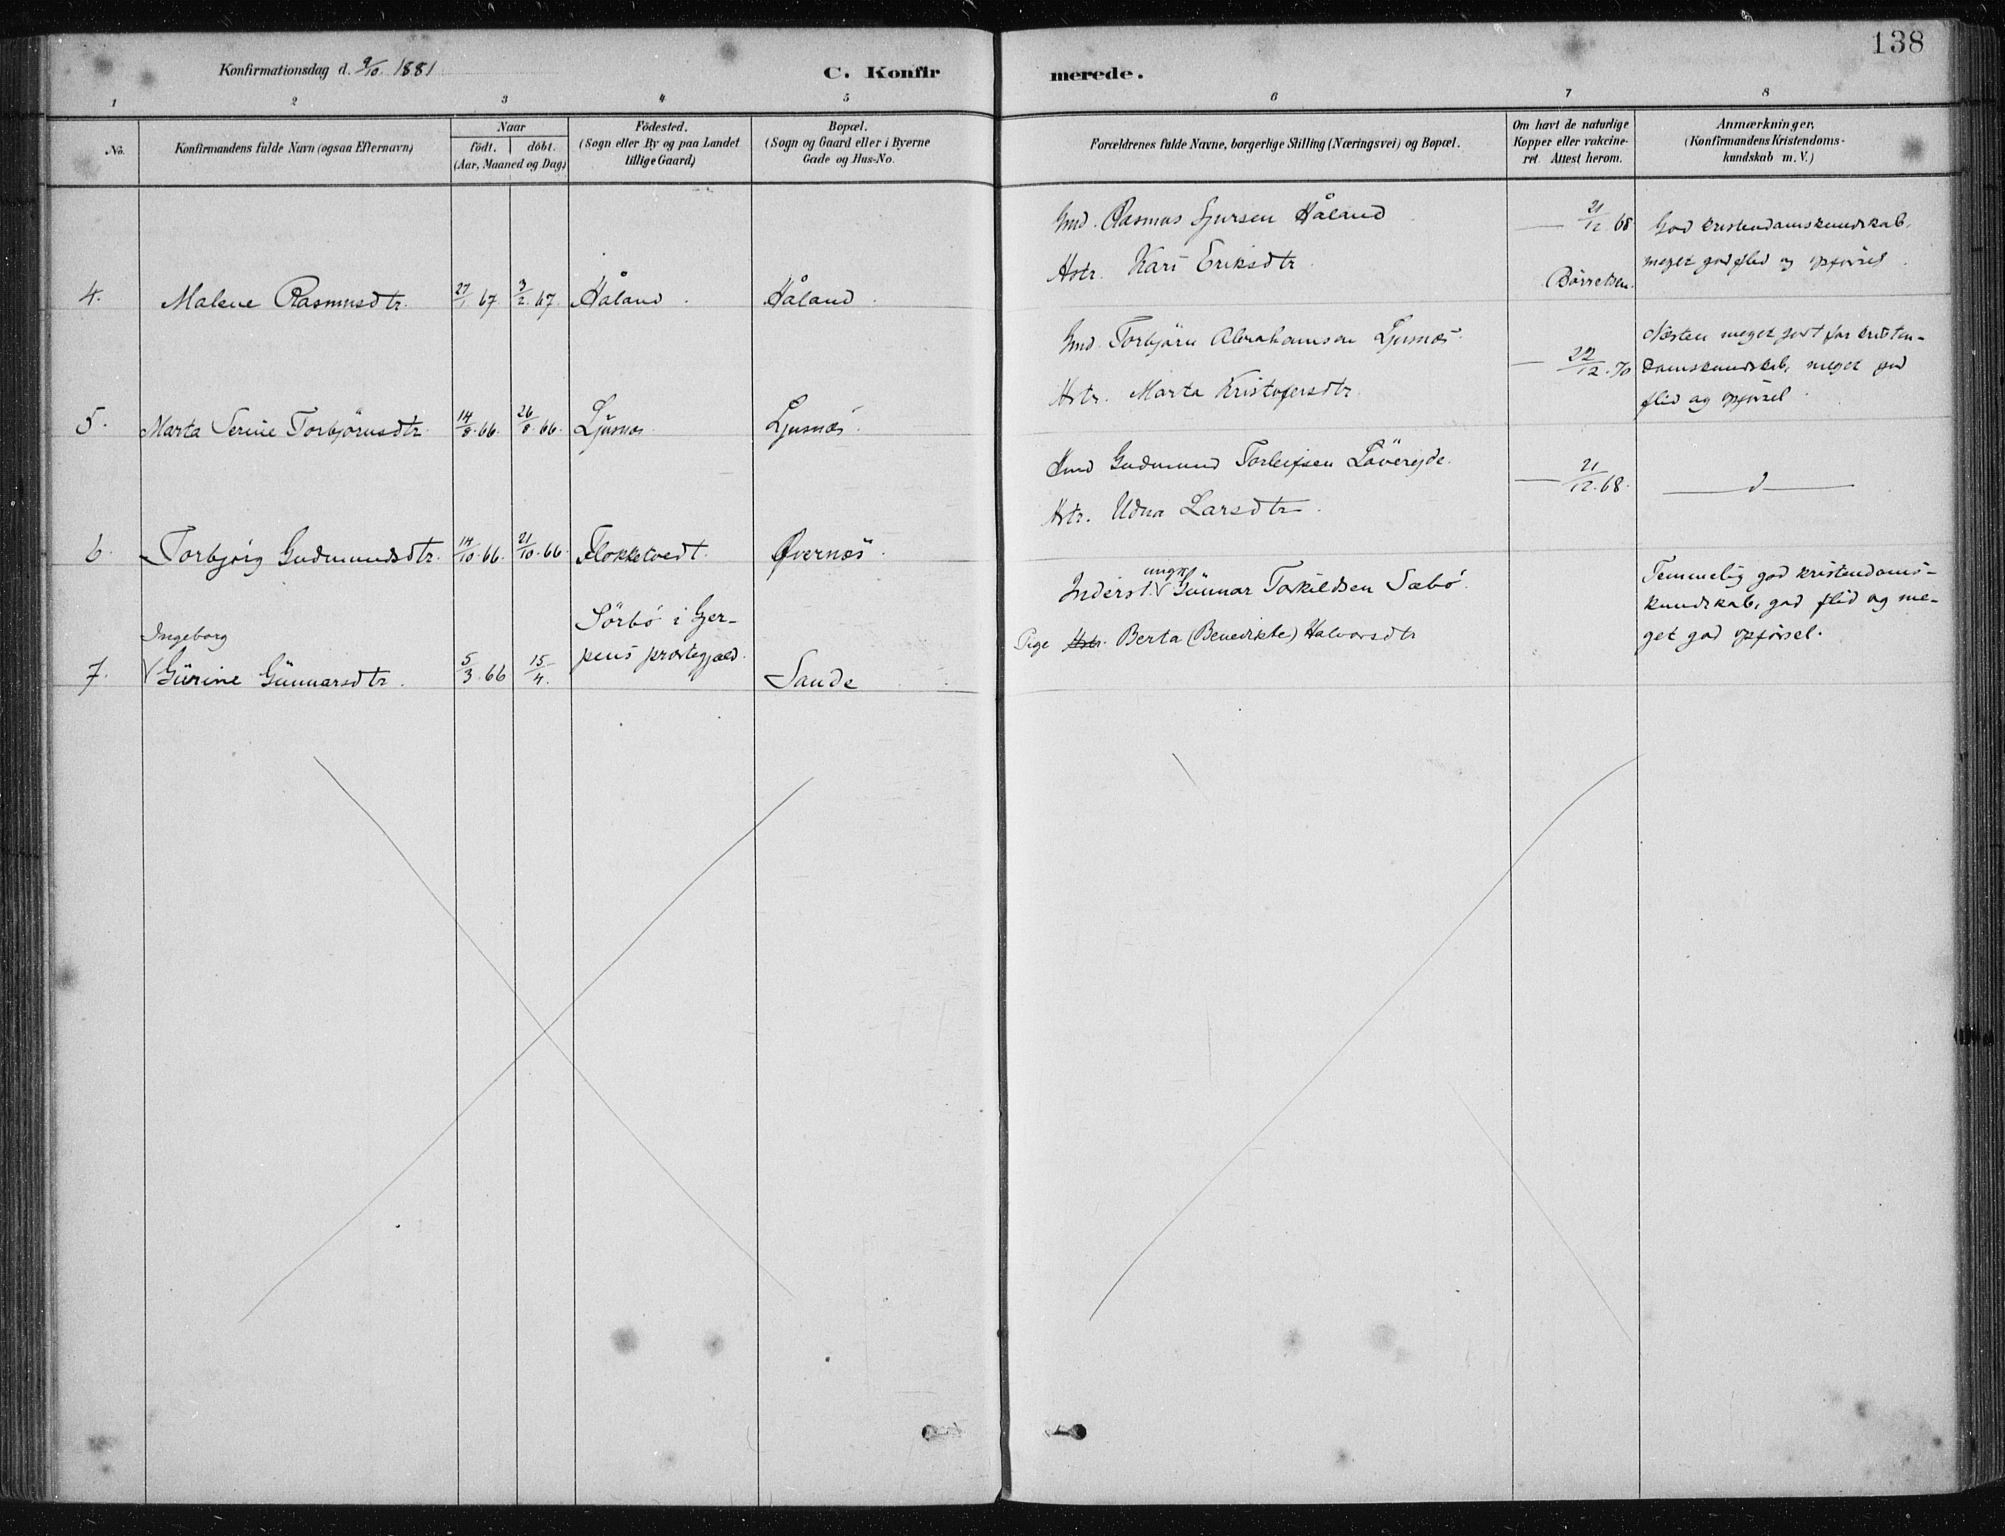 138
Konfirmationsdag d. 9/10 1881
C. Konfirmerede.
1 2 3 4 5 6 7 8
No.
Konfirmandens fulde Navn (ogsaa Efternavn)
Naar
födt. döbt.
(Aar, Maaned og Dag)
Födested.
(Sogn eller By og paa Landet
tillige Gaard)
Bopæl.
(Sogn og Gaard eller i Byerne
Gade og Hus-No.
Forældrenes fulde Navne, borgerlige Stilling (Næringsvei) og Bopæl.
Om havt de naturlige
Kopper eller vakcine-
ret. Attest herom.
Anmærkninger,
(Konfirmandens Kristendoms-
kundskab m. V.)
Gmd. Rasmus Sjursen Håland
Hstr. Kari Eriksdtr.
— 21/12 68
Börretsen.
God kristendomskundskab,
meget god flid og opförsel.
4. Malene Rasmusdtr. 27/1 67 3/2 67. Håland. Håland.
Gmd. Torbjörn Abrahamsen Ljusnæs
Hstr. Marta Kristofersdtr.
— 22/12. 70
Næsten meget godt for kristen-
domskundskab, meget god
flid og opförsel.
5. Marta Serine Torbjörnsdtr. 14/8. 66. 26/8. 66. Ljusnæs Ljusnæs.
Hmd Gudmund Torleifsen
Hstr. Udna Larsdtr.
— 21/12. 68.
— d —
6. Torbjörg Gudmundsdtr. 14/10. 66. 21/10. 66. Flokketvedt. Øvernæs.
Inderst, ungk. Gunnar Torkildsen Sæbö.
Pige Hstr. Berta (Benedikte) Halvorsdtr
Temmelig god kristendoms-
kundskab, god flid og me-
get god opförsel.
Sörbö i Gjer-
pens præstegjæld.
Ingeborg
7. Gurine Gunnarsdtr. 5/3. 66 15/4. Sande